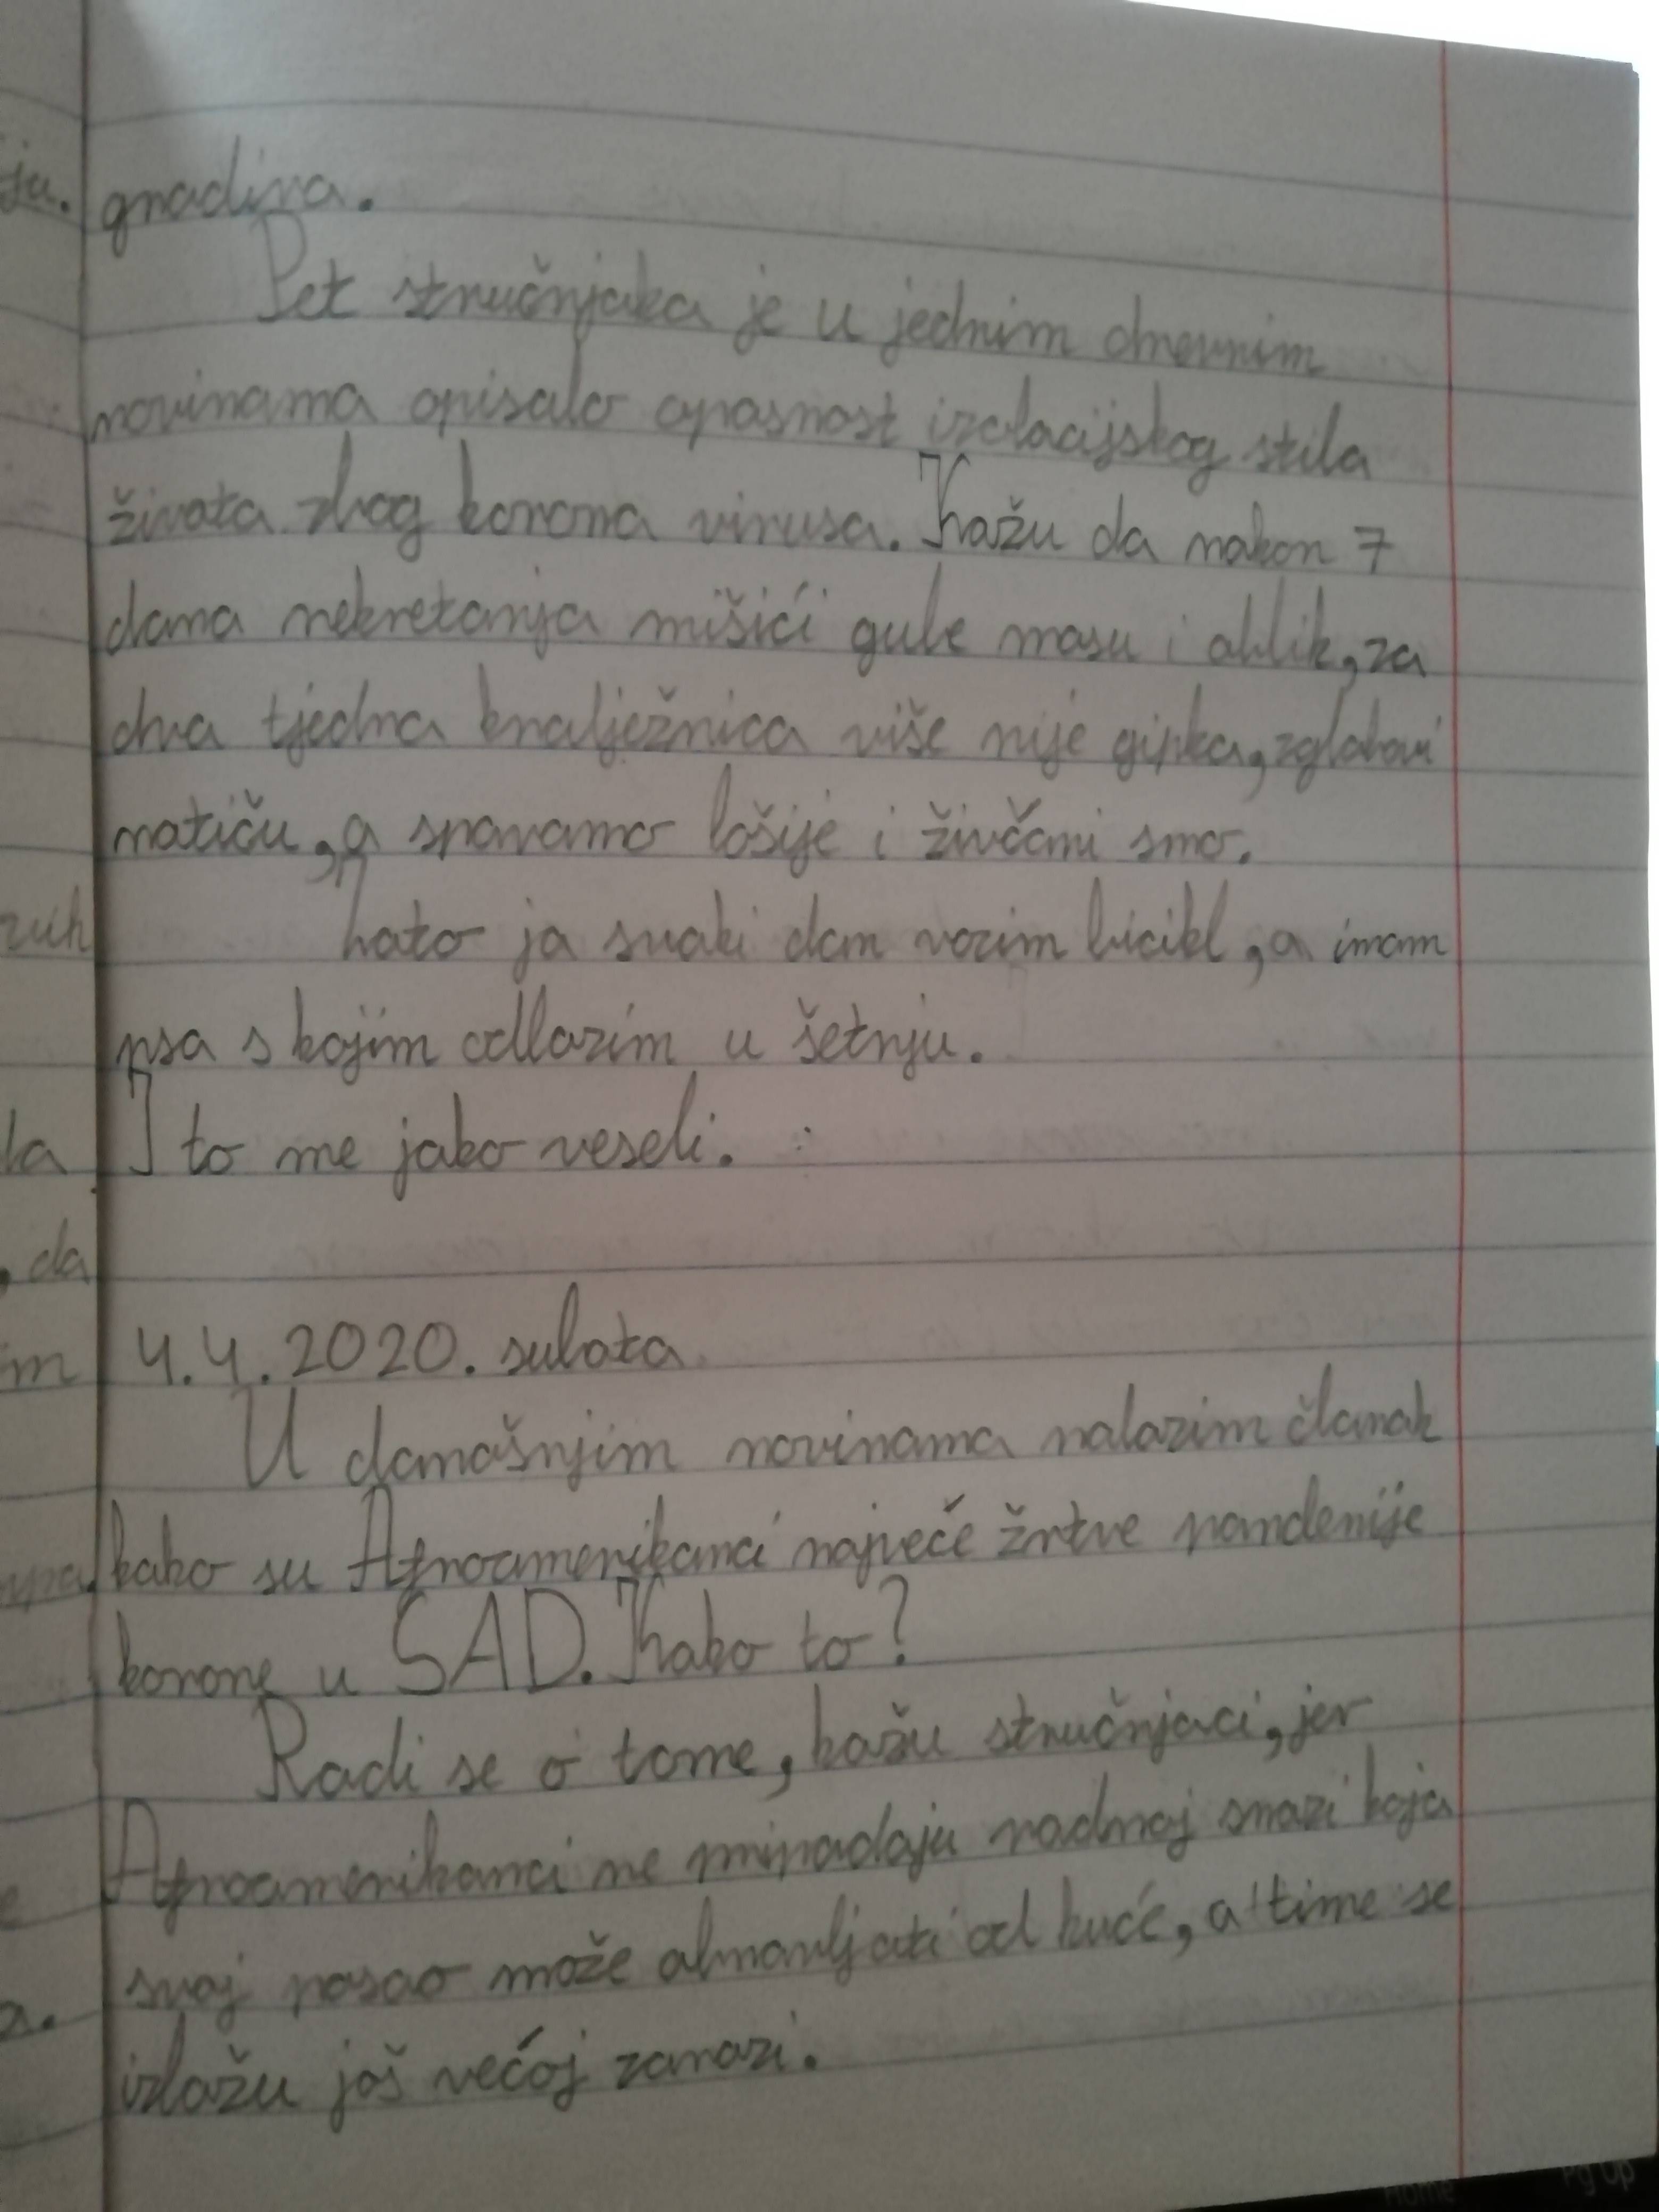 gradiva.
Pet stručnjaka je u jednim dnevnim
novinama opisalo opasnost izolacijskog stila
života zbog korona virusa. Kažu da nakon 7
dana nekretanja mišići gube masu i oblik, za
dva tjedna kralježnica više nije gipka, zglobovi
natiču, a spavamo lošije i živčani smo.
Zato ja svaki dan vozim bicikl, a imam
psa s kojim odlazim u šetnju.
I to me jako veseli.
4.4.2020. subota
U današnjim novinama nalazim članak
kako su Afroamerikanci najveće žrtve pandemije
korone u SAD. Kako to?
Radi se o tome, kažu stručnjaci, jer
Afroamerikanci ne pripadaju radnoj snazi koja
svoj posao može obnavljati od kuće, a time se
izlažu još većoj zarazi.
ja.
la
, da
m
e
a.